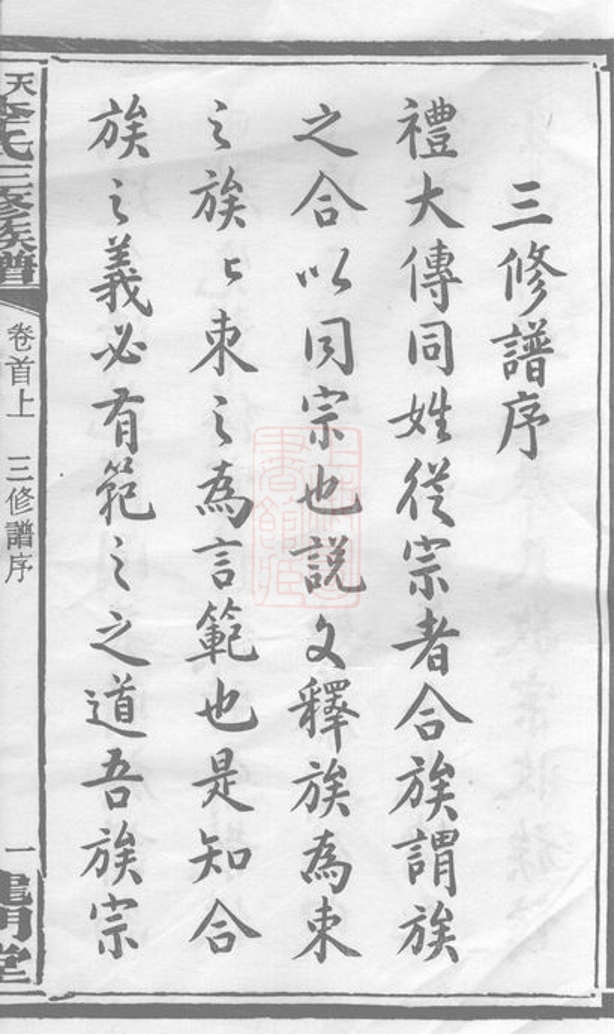 三修譜序
禮大傳同姓從宗者合族謂族
之合以同宗也説文釋族為束
之族〻束之為言範也是知合
族之義必有範之之道吾族宗
三修族譜
卷首上
三修譜序
一